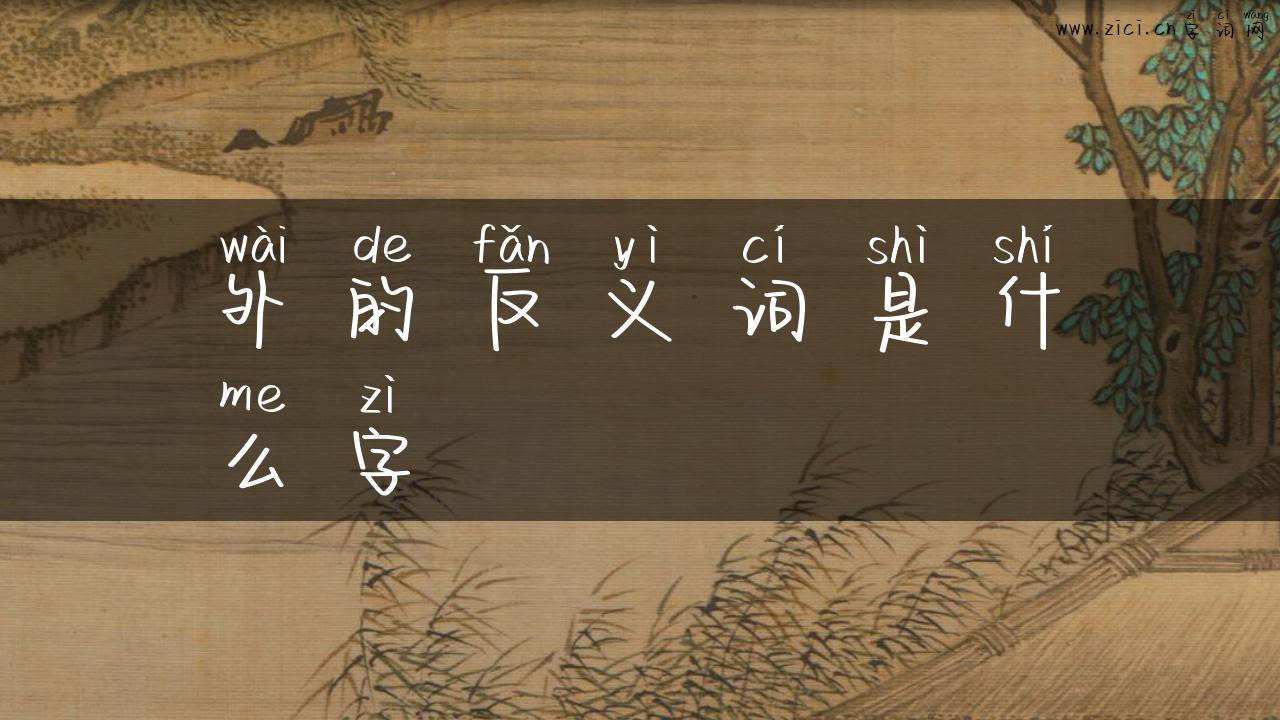 zì cí wǎng
www.zici.cn字词网
wài de fǎn yì cí shì shí
外的反义词是什
me zì
么字